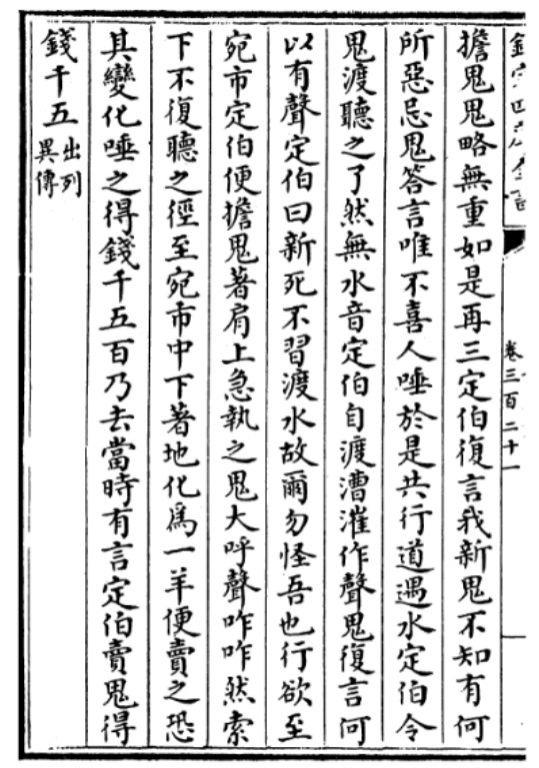 卷三百二十一
擔鬼鬼略無重如是再三定伯復言我新鬼不知有何
所惡忌鬼答言唯不喜人唾於是共行道遇水定伯令
鬼渡聽之了然無水音定伯自渡漕漼作聲鬼復言何
以有聲定伯曰新死不習渡水故爾勿怪吾也行欲至
宛市定伯便擔鬼著肩上急執之鬼大呼聲咋咋然索
下不復聽之徑至宛市中下著地化爲一羊便賣之恐
其變化唾之得錢千五百乃去當時有言定伯賣鬼得
錢千五出列異傳